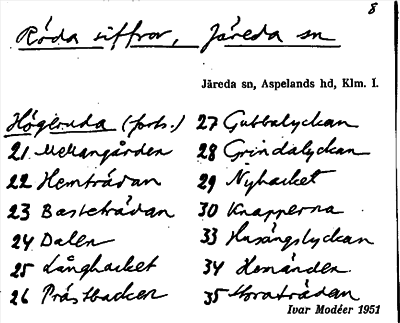 8
Röda siffror, Järeda sn
Järeda sn, Aspelands hd, Klm. l.
Högeruda (forts.)
21 Mellangården
22 Hemträdan
23 Basteträdan
24 Dalen
25 Långhacket
26 Prästbacken
27 Gubbalyckan
28 Grindalyckan
29 Nyhacket
30 Knapperna
33 Husängslyckan
34 Henänden
35 Storaträdan
Ivar Modéer 1951